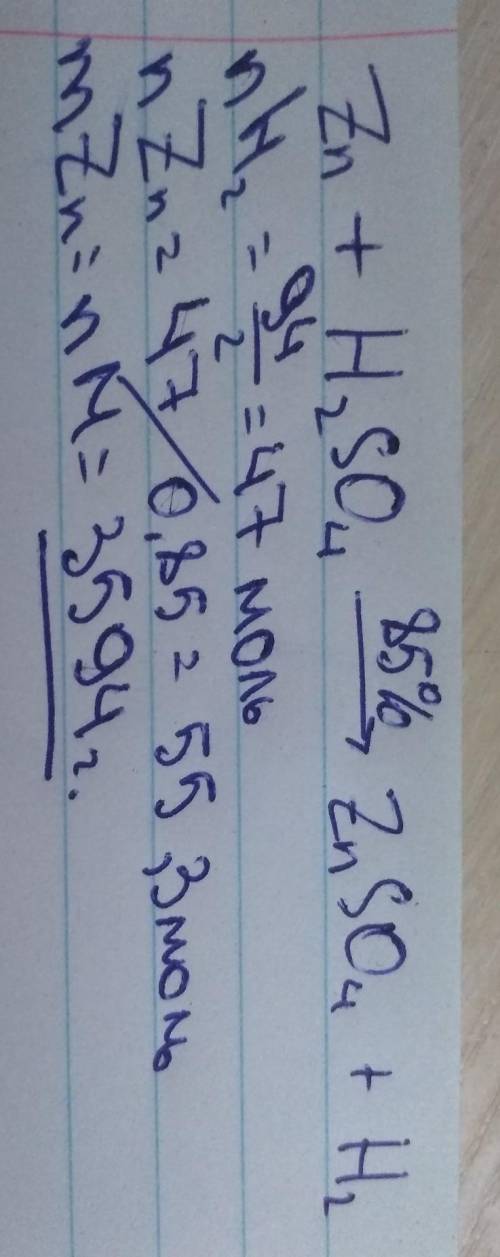 Zn + H₂SO₄ 85% → ZnSO₄ + H₂
nH₂ = 94/2 = 47 моль
nZn = 47/0,85 = 55,3 моль
mZn = nM = 3594 г.